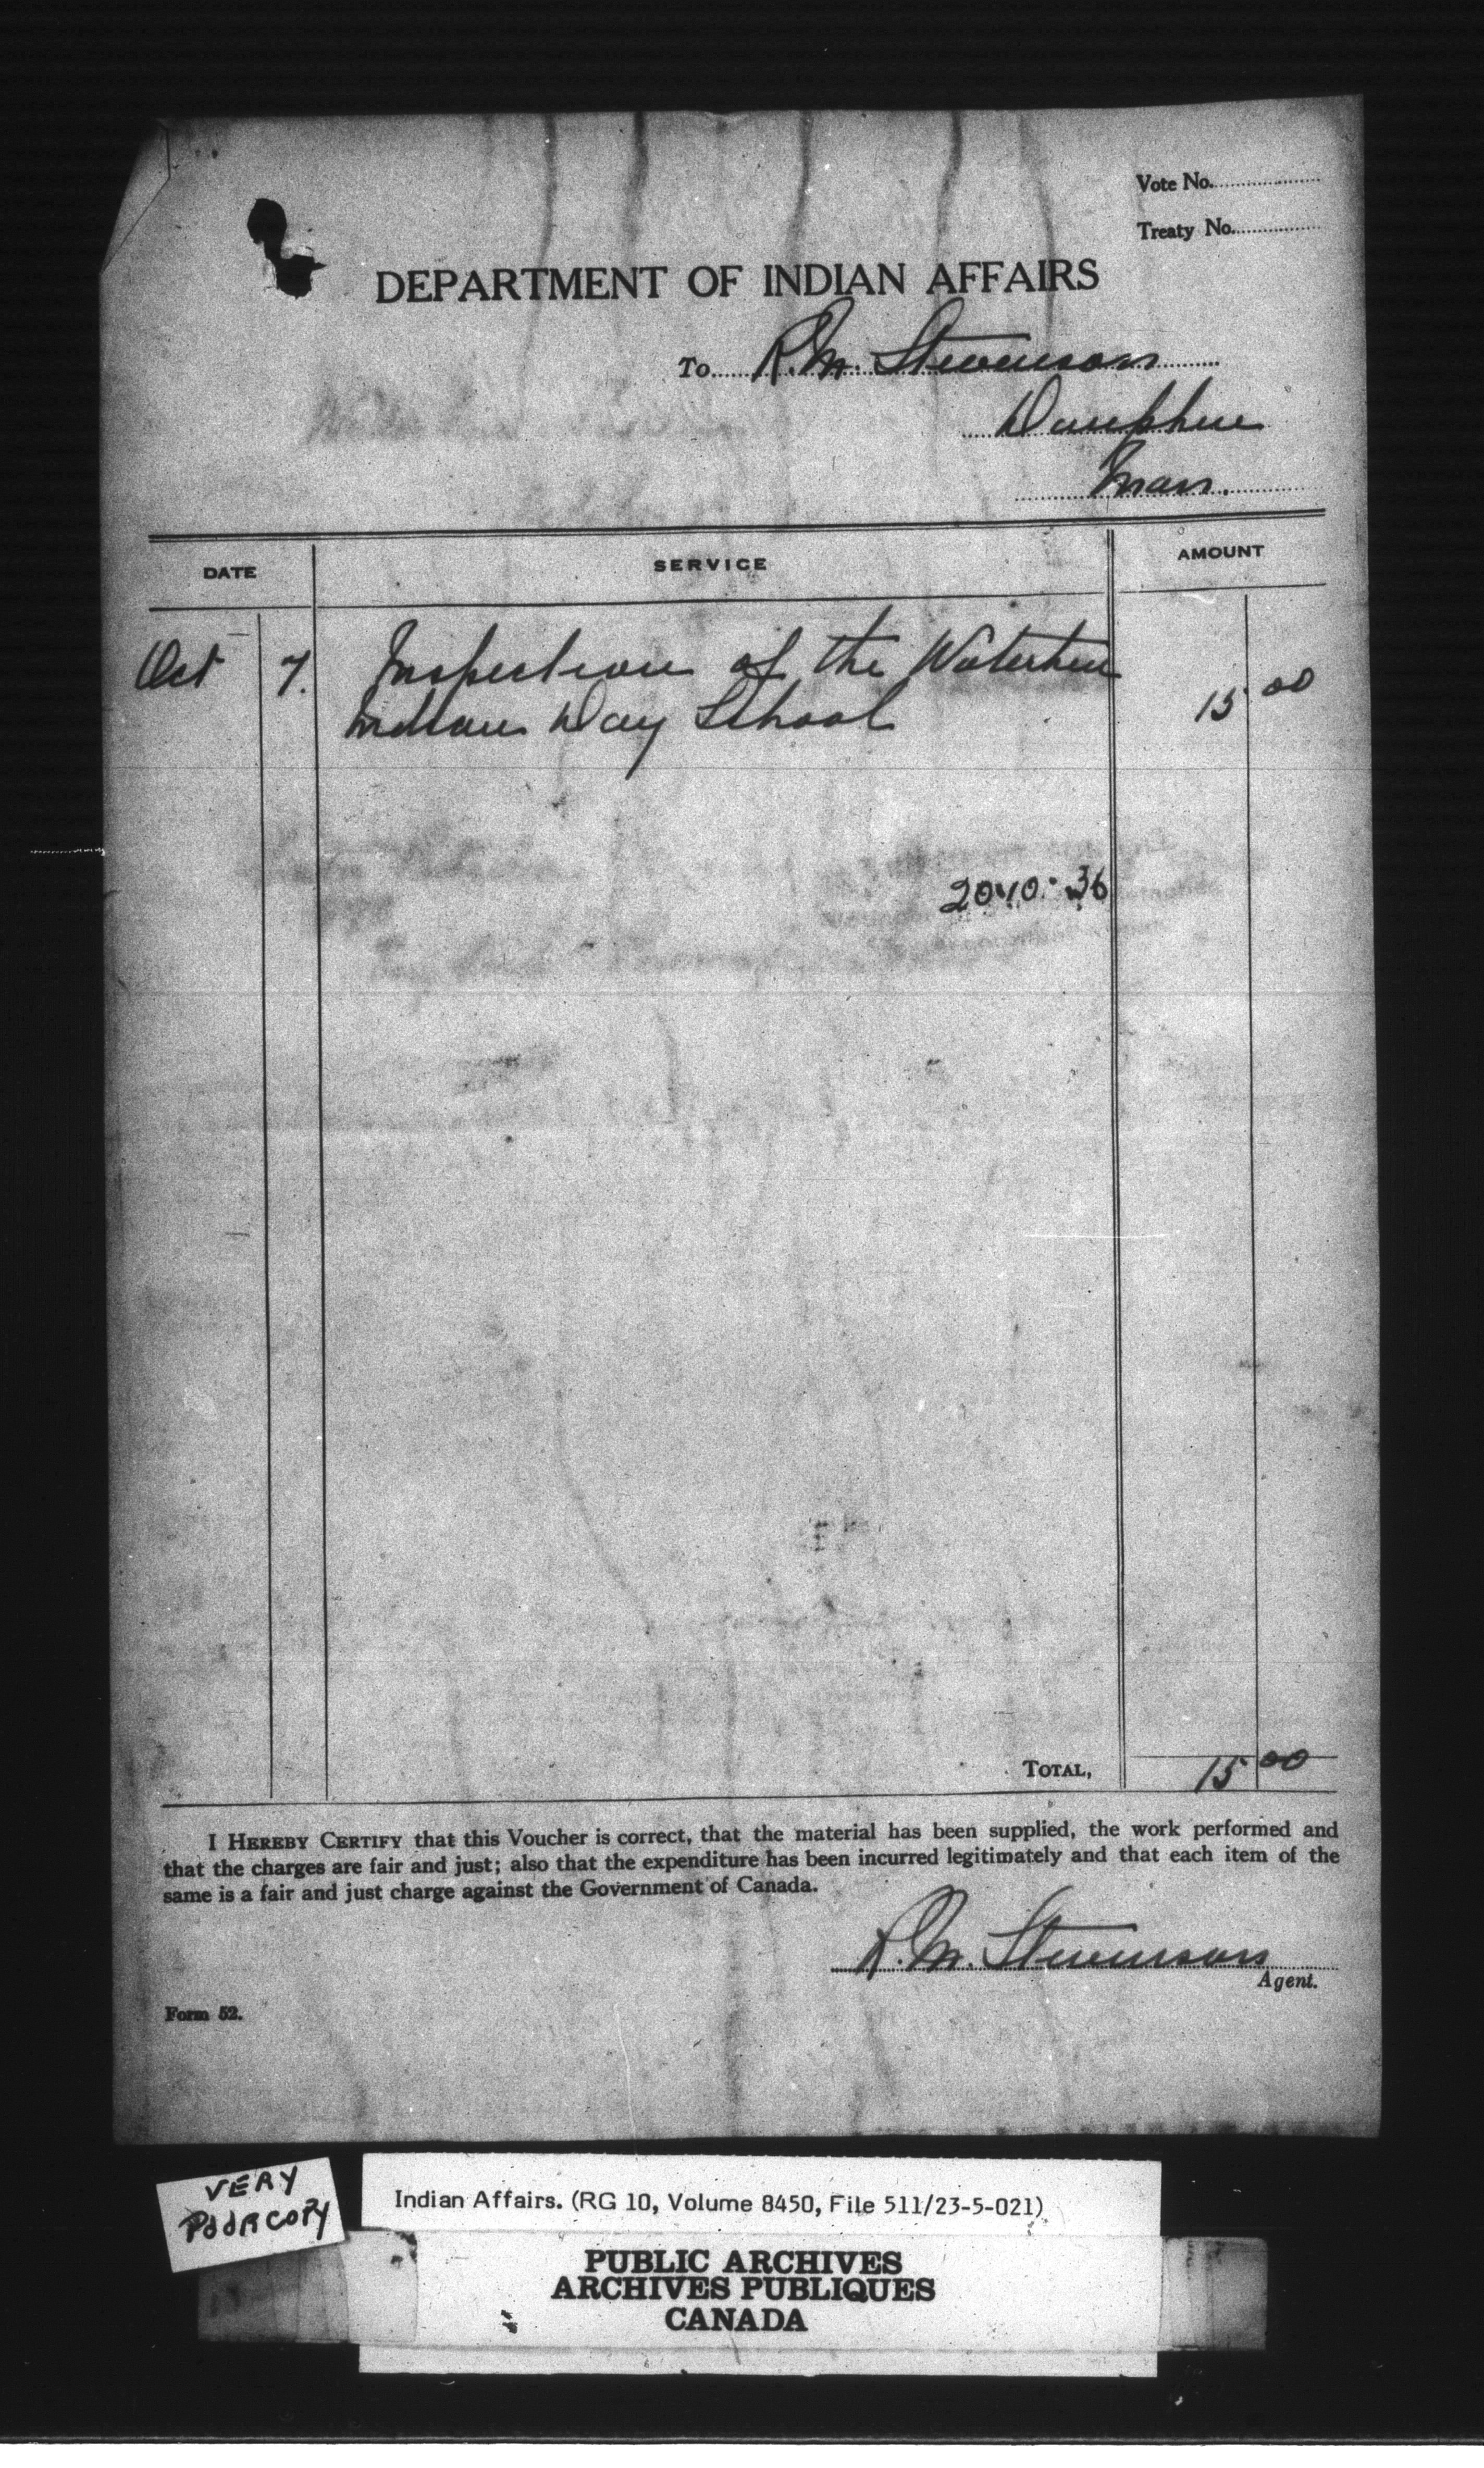 Vote No.
Treaty No.
DEPARTMENT OF INDIAN AFFAIRS
To R. M. Stevenson
Dauphin
Man.
DATE SERVICE AMOUNT
Oct 7. Inspection of the Waterhen 15 00
Indian Day School
20·10·36
TOTAL, 15 00
I HEREBY CERTIFY that this Voucher is correct, that the material has been supplied, the work performed and
that the charges are fair and just; also that the expenditure has been incurred legitimately and that each item of the
same is a fair and just charge against the Government of Canada.
R. M. Stevenson
Agent.
Form 52.
VERY
POOR COPY
Indian Affairs. (RG 10, Volume 8450, File 511/23-5-021)
PUBLIC ARCHIVES
ARCHIVES PUBLIQUES
CANADA